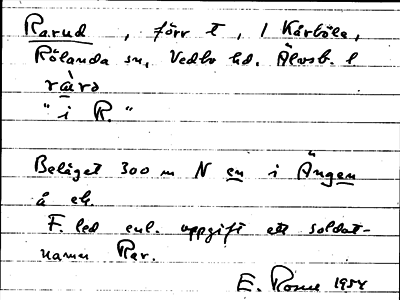 Rarud, förr t, i Kårböle,
Rölanda sn, Vedbo hd. Älvsb. l
"i R."
Beläget 300 m N en i Ängen
å ek.
F. led enl. uppgift ett soldat-
namn Rar.
E. Rosell 1954